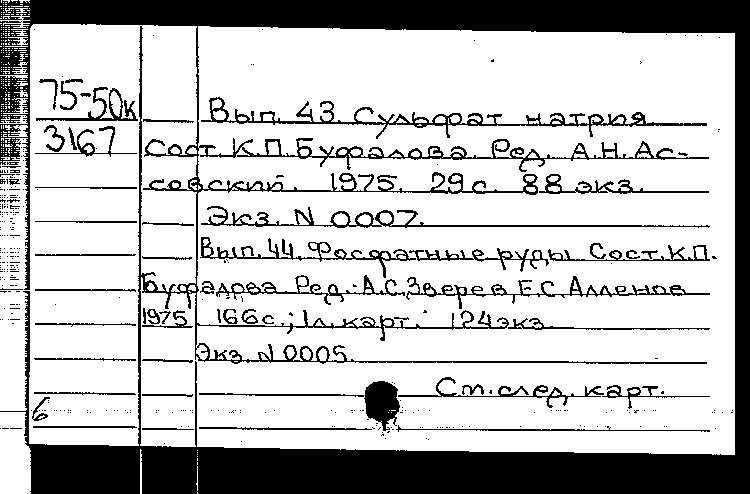 75-50к
3167
Вып. 43. Сульфат натрия
Сост. К.П. Буфалова. Ред. А.Н. Ас-
совский. 1975. 29 с. 88 экз.
Экз. N 0007.
Вып. 44. Фосфатные руды Сост. К.П.
Буфалова Ред. А.С. Зверев, Е.С. Алленов
1975 166 с.; 1 л. карт. 124 экз.
Экз. N 0005.
См. след. карт.
6